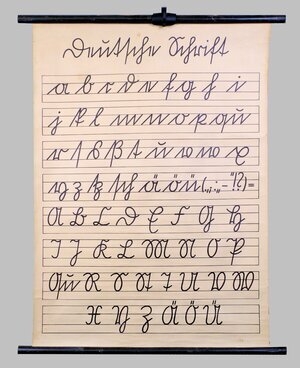 Deutſche Schrift
a b c d e f g h i
j k l m n o p qu
r ſ s ß t u v w x
y z tz ſch ä ö ü (.,:;„–“!?)=
A B C D E F G H
I J K L M N O P
Qu R S St T U V W
X Y Z Ä Ö Ü